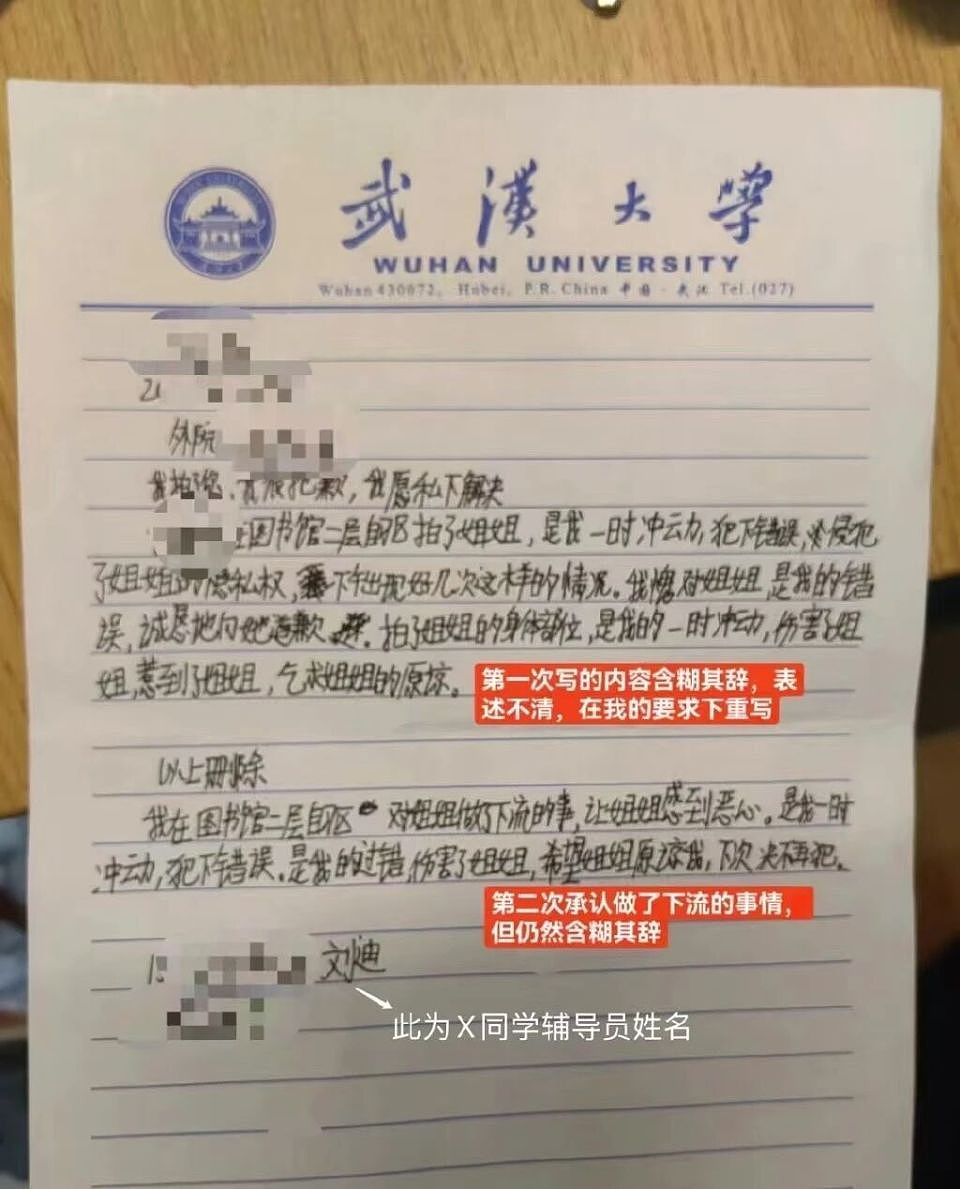 武漢大學
WUHAN UNIVERSITY
Wuhan 430072, Hubei, P.R. China 中国·武汉 Tel.(027)
外院
歉，我愿私下解决
图书馆二层自区拍了姐姐，是我一时冲云力，犯下错误，侵犯
了姐姐的隐私权，下午出现好几次这样的情况。我愧对姐姐，是我的错
误，诚恳地向她道歉。拍了姐姐的身体部位，是我的一时冲动，伤害了姐
姐，惹到了姐姐，乞求姐姐的原谅。
第一次写的内容含糊其辞，表
述不清，在我的要求下重写
以上删除
我在图书馆二层自区对姐姐做了下流的事，让姐姐感到恶心。是我一时
冲动，犯下错误。是我的过错，伤害了姐姐，希望姐姐原谅我，下次决不再犯。
第二次承认做了下流的事情，
但仍然含糊其辞
刘迪
此为X同学辅导员姓名